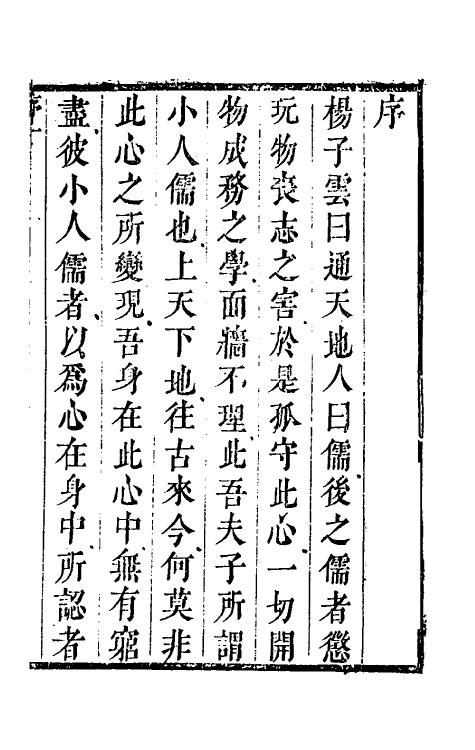 序
楊子雲曰通天地人曰儒後之儒者懲
玩物喪志之害於是孤守此心一切開
物成務之學面牆不理此吾夫子所謂
小人儒也上天下地往古來今何莫非
此心之所變現吾身在此心中無有窮
盡彼小人儒者以爲心在身中所認者
序一